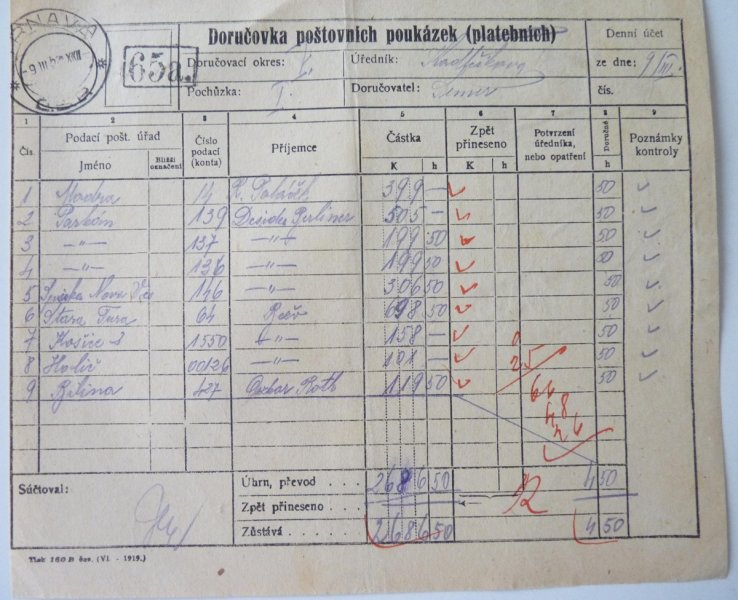 RNAVA
65a.
Doručovka poštovních poukázek (platebních)
Doručovací okres: I. Úředník:
Pochůzka: I. Doručovatel:
Denní účet
ze dne: 9/III.
čís.
1 2 3 4 5 6 7 8 9
Čís. Podací pošt. úřad Jméno Bližší označení Číslo podací (konta) Příjemce Částka K h Zpět přineseno K h Potvrzení úředníka, nebo opatření Doručné h Poznámky kontroly
1 Modra 14 399 — 50
2 Parkán 139 Desider Perliner 505 — 50
3 —"— 137 —"— 199 50 50
4 —"— 136 —"— 199 50 50
5 Nova 146 —"— 306 50 50
6 Stara Tura 64 698 50 50
7 Košice 1 1550 —"— 158 — 50
8 Holič 00126 —"— 101 — 50
9 Bilina 427 Oskar Roth 119 50 50
25
Súčtoval:
Úhrn, převod . . . . 2686 50 4 50
Zpět přineseno . . . 12
Zůstává . . . 2686 50 4 50
Tisk 160 B čsv. (VI. - 1919.)